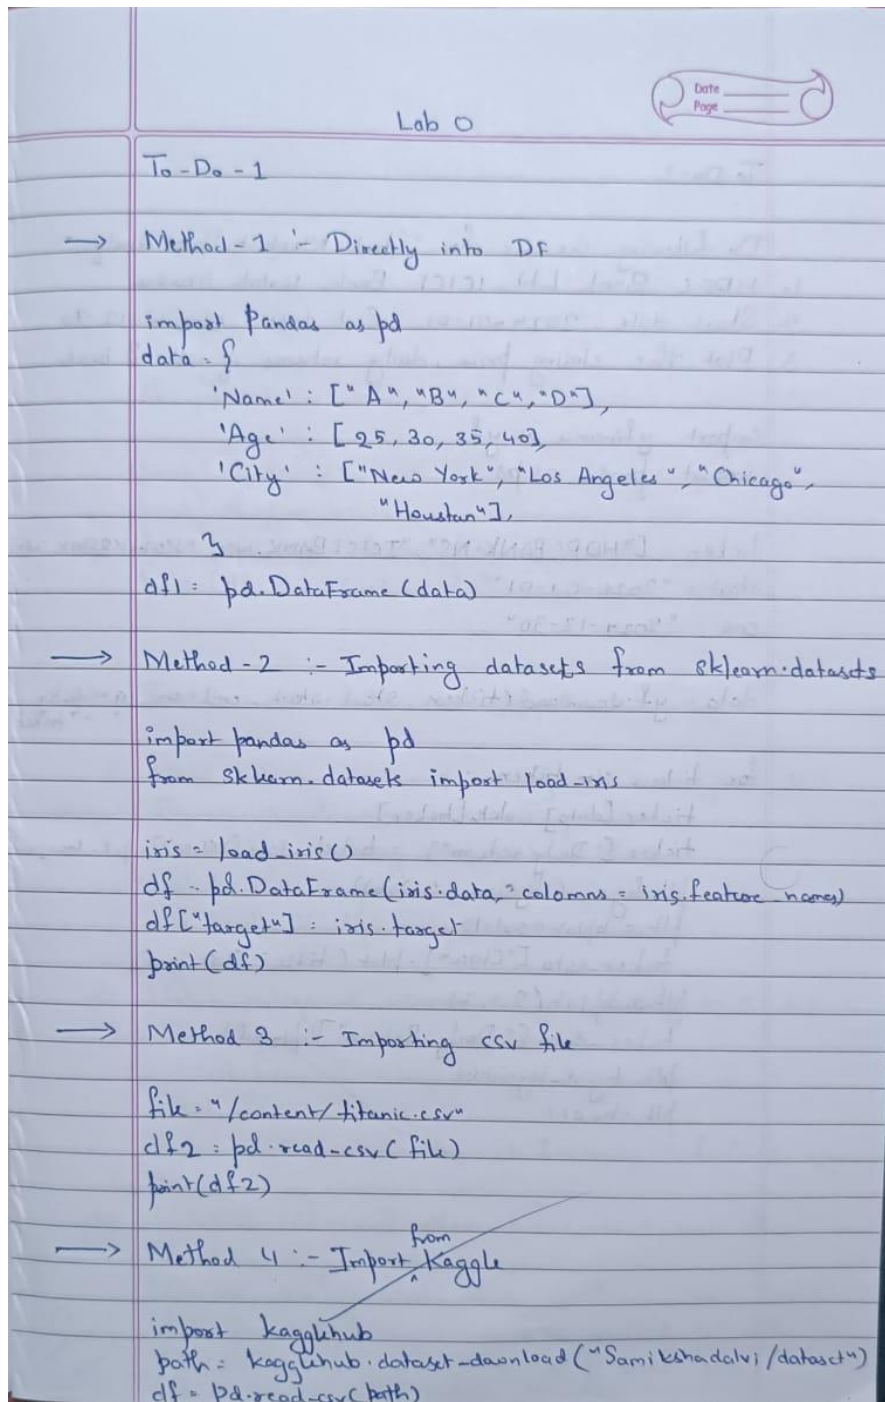 Date
Page
Lab 0
To-Do-1
→ Method-1 :- Directly into DF
import Pandas as pd
data = {
'Name' : ["A", "B", "C", "D"],
'Age' : [25, 30, 35, 40],
'City' : ["New York", "Los Angeles", "Chicago",
"Houstan"],
}
df1 = pd.DataFrame(data)
→ Method-2 :- Importing datasets from sklearn.datasets
import pandas as pd
from sklearn.datasets import load_iris
iris = load_iris()
df = pd.DataFrame(iris.data, colomns = iris.feature_names)
df["target"] = iris.target
print(df)
→ Method 3 :- Importing csv file
file = "/content/titanic.csv"
df2 = pd.read_csv(file)
print(df2)
→ Method 4 :- Import from Kaggle
import kagglehub
path = kagglehub.dataset_download("Samikshadalvi/dataset")
df = pd.read_csv(path)